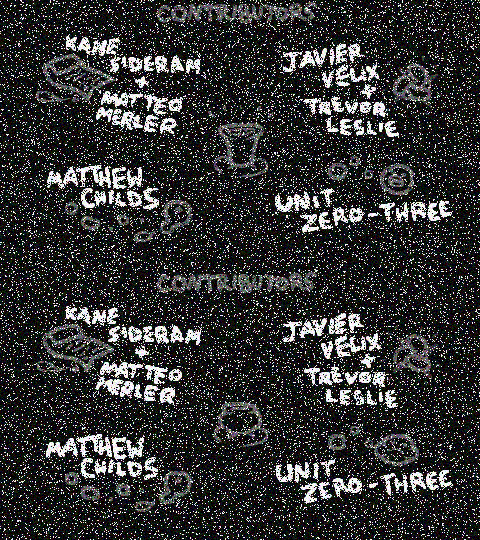 CONTRIBUTORS
KANE
SIDERAM
+
MATTEO
MERLER
JAVIER
VELIX
+
TREVOR
LESLIE
MATTHEW
CHILDS
UNIT
ZERO-THREE
CONTRIBUTORS
KANE
SIDERAM
+
MATTEO
MERLER
JAVIER
VELIX
+
TREVOR
LESLIE
MATTHEW
CHILDS
UNIT
ZERO-THREE